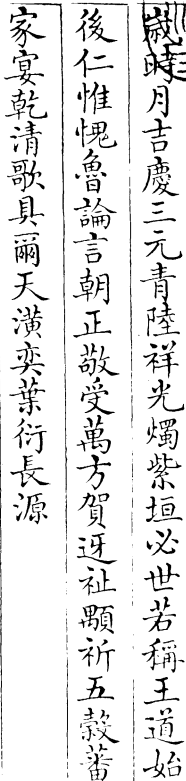 歲時月吉慶三元青陸祥光燭紫垣必世若稱王道始
後仁惟愧魯論言朝正敬受萬方賀迓祉顒祈五穀蕃
家宴乾清歌具爾天潢奕葉衍長源